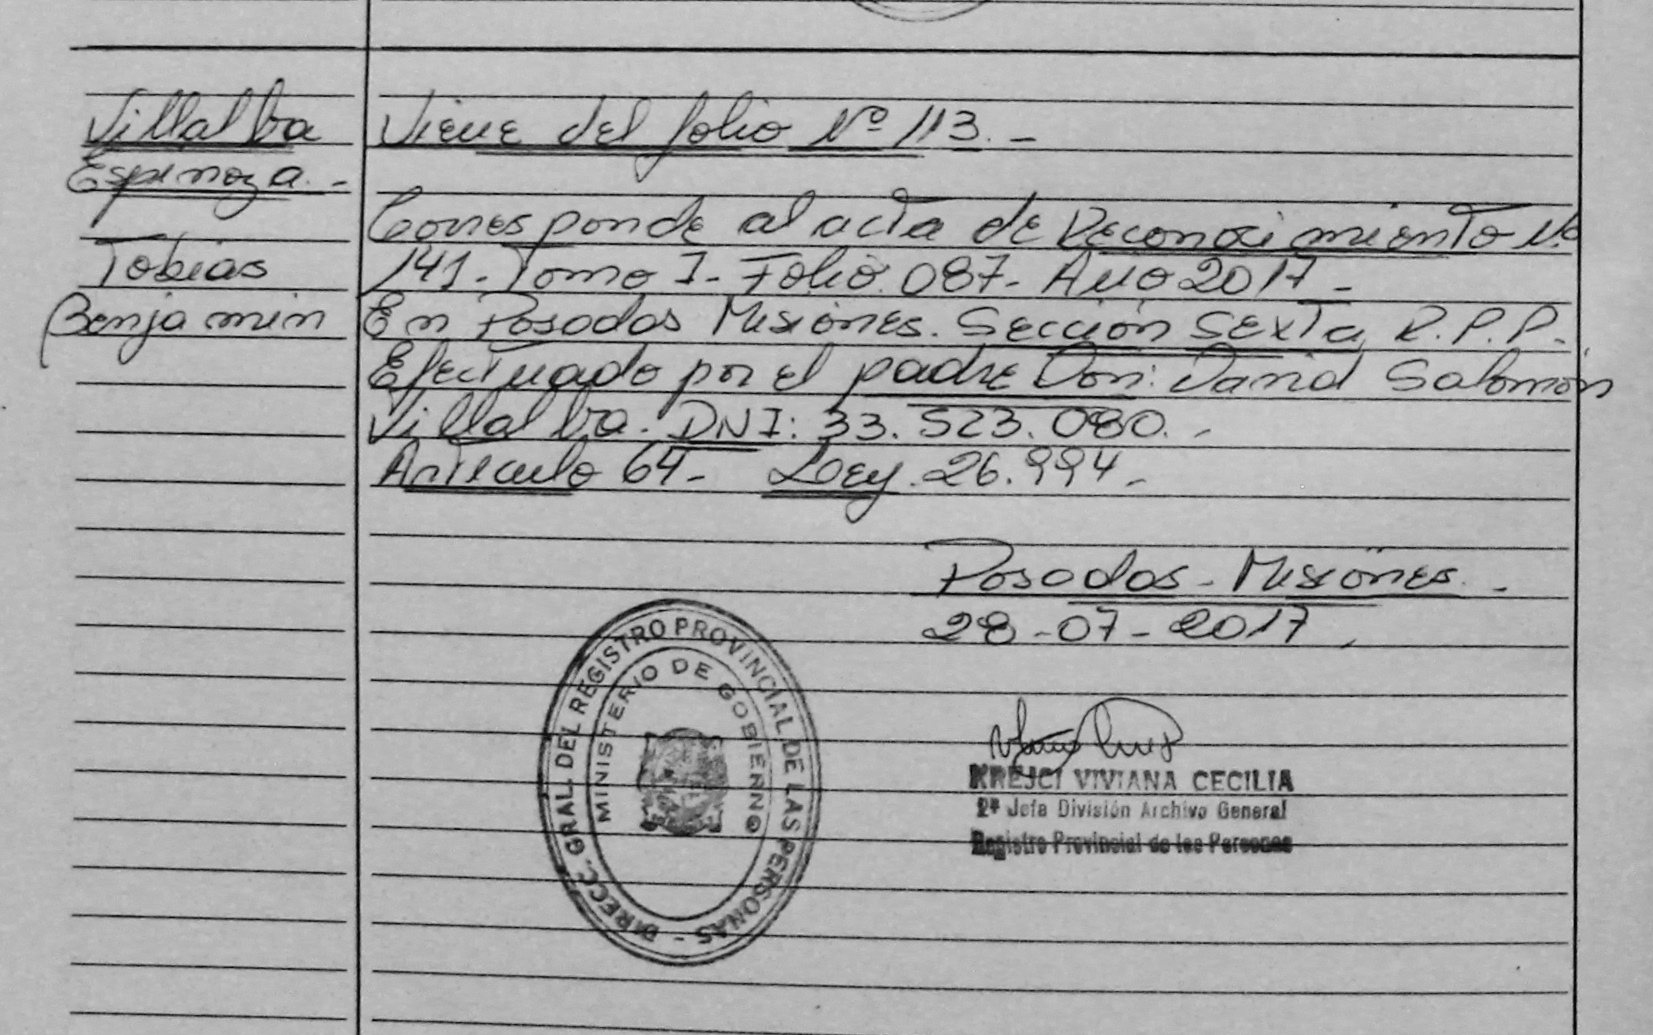 Villalba
Espinoza.-
Tobias
Benjamin
Viene del folio Nº 113.-
Corresponde al acta de Reconocimiento Nº
141- Tomo I- Folio 087- Año 2017-
En Posadas Misiones. Sección Sexta R.P.P.
Efectuado por el padre Don: David Salomón
Villalba. DNI: 33.523.080.-
Articulo 64- Ley 26.994-
Posadas- Misiones.-
28-07-2017
DIRECC. GRAL. DEL REGISTRO PROVINCIAL DE LAS PERSONAS -
MINISTERIO DE GOBIERNO
KREJCI VIVIANA CECILIA
2ª Jefa División Archivo General
Registro Provincial de las Personas